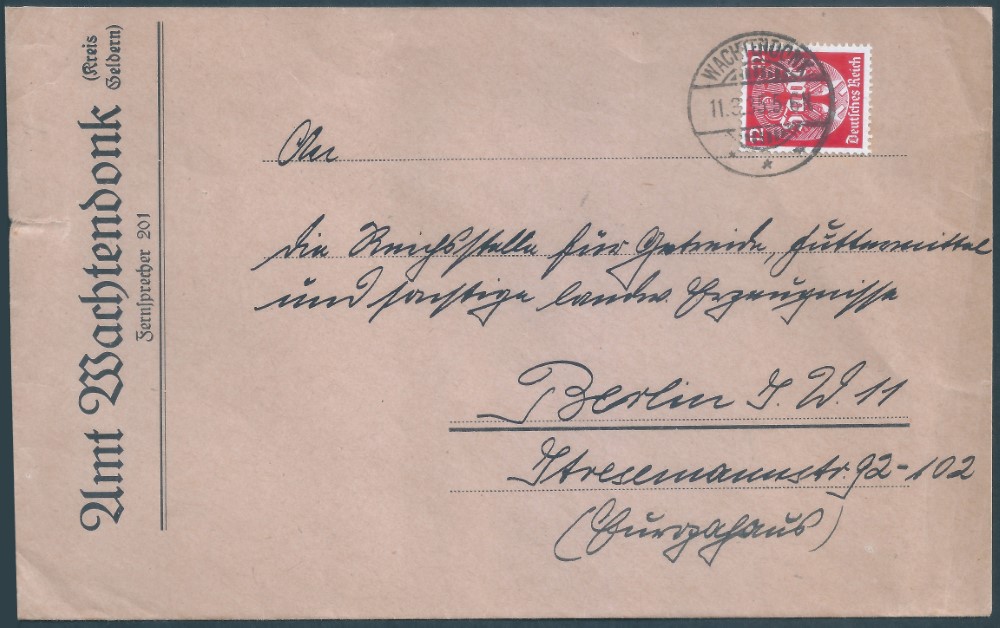 Amt Wachtendonk (Kreis Geldern)
Fernsprecher 201
WACHTENDONK
11.3.
Deutsches Reich
12
12
An
die Reichsstelle für Getreide, Futtermittel
und sonstige landw. Erzeugnisse
Berlin S.W. 11
Stresemannstr. 92-102
(Europahaus)